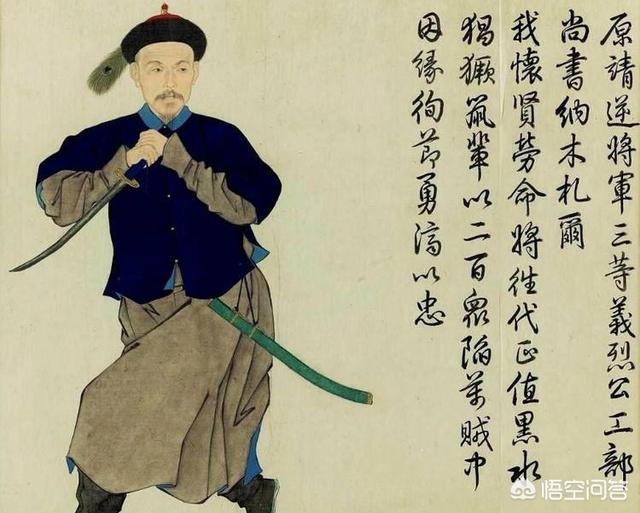 原靖逆將軍三等義烈公工部
尚書納木札爾
我懷賢勞命將往代正值黑水
猖獗鼠輩以二百眾陷萬賊中
因緣徇節勇濟以忠
悟空问答